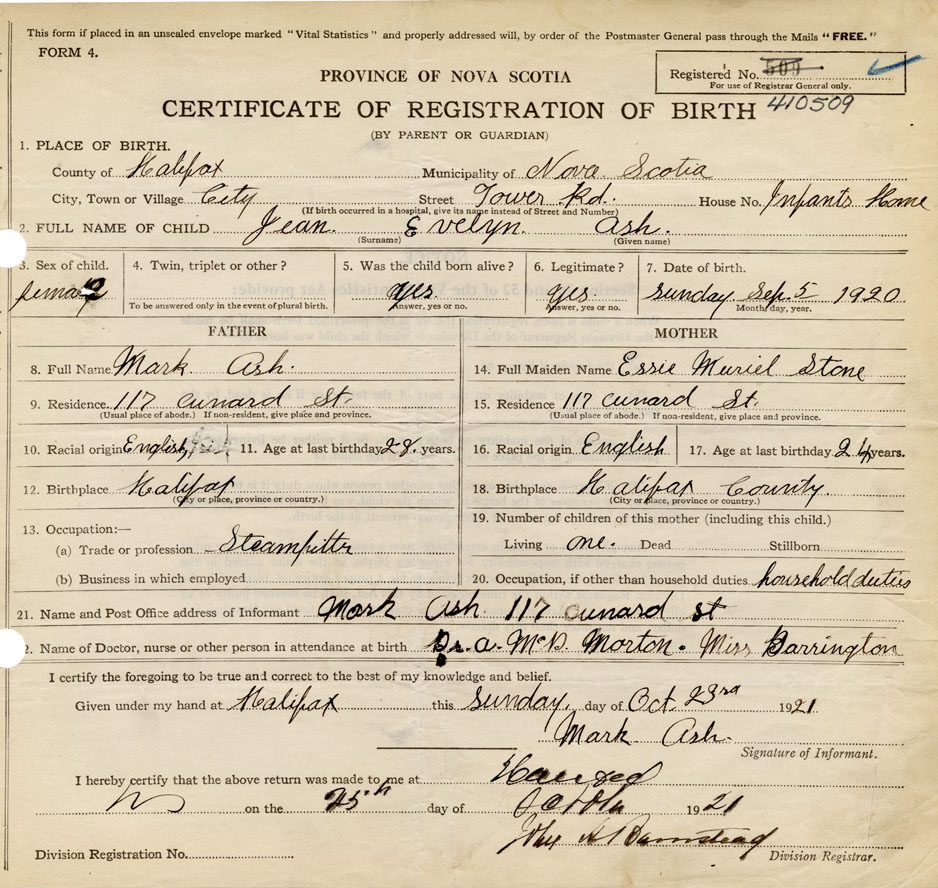 This form if placed in an unscaled envelope marked "Vital Statistics" and properly addressed will, by order of the Postmaster General pass through the Mails "FREE."
FORM 4.
PROVINCE OF NOVA SCOTIA
Registered No. 509
For use of Registrar General only.
CERTIFICATE OF REGISTRATION OF BIRTH 410509
(BY PARENT OR GUARDIAN)
1. PLACE OF BIRTH.
County of Halifax Municipality of Nova Scotia
City, Town or Village City Street Tower Rd. House No. Infants Home
(If birth occurred in a hospital, give its name instead of Street and Number)
2. FULL NAME OF CHILD Jean. Evelyn. Ash.
(Surname) (Given name)
3. Sex of child. 4. Twin, triplet or other? 5. Was the child born alive? 6. Legitimate? 7. Date of birth.
yes. yes. Sunday Sep. 5 1920
To be answered only in the event of plural birth. Answer, yes or no. Answer, yes or no. Month, day, year.
FATHER MOTHER
8. Full Name Mark Ash. 14. Full Maiden Name Essie Muriel Stone
9. Residence 117 Cunard St. 15. Residence 117 Cunard St.
(Usual place of abode.) If non-resident, give place and province. (Usual place of abode.) If non-resident, give place and province.
10. Racial origin English, 11. Age at last birthday 28. years. 16. Racial origin English 17. Age at last birthday 24 years.
12. Birthplace Halifax 18. Birthplace Halifax County.
(City or place, province or country.) (City or place, province or country.)
13. Occupation:— 19. Number of children of this mother (including this child.)
(a) Trade or profession Steamfitter Living one. Dead Stillborn
(b) Business in which employed 20. Occupation, if other than household duties household duties
21. Name and Post Office address of Informant Mark Ash 117 Cunard St
2. Name of Doctor, nurse or other person in attendance at birth Dr. A. McD. Morton. Miss Barrington
I certify the foregoing to be true and correct to the best of my knowledge and belief.
Given under my hand at Halifax this Sunday, day of Oct. 23rd 1921
Mark Ash.
Signature of Informant.
I hereby certify that the above return was made to me at Halifax
on the 25th day of October 1921
Division Registration No. Division Registrar.